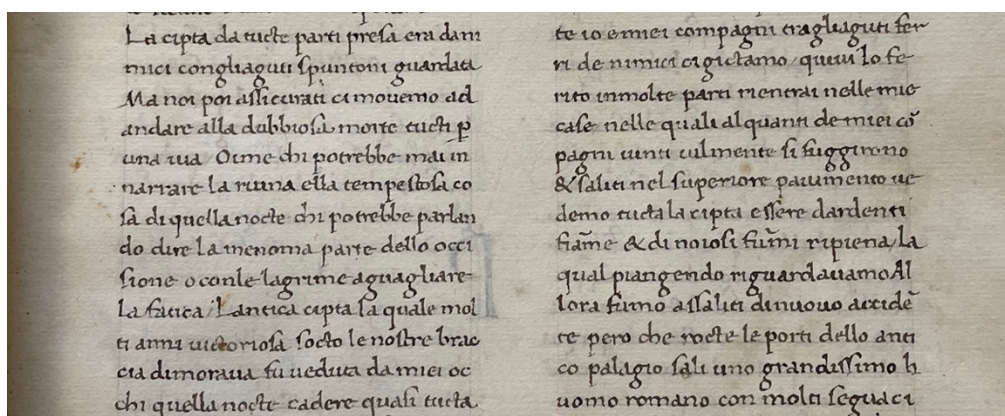 La cipta da tucte parti presa era dani
mici congliaguti spuntoni guardata
Ma noi poi assicurati ci movemo ad
andare alla dubbiosa morte tucti ꝑ
una uia Oime chi potrebbe mai in
narrare la riuina ella tempestosa co
sa di quella nocte chi potrebbe parlan
do dire la menoma parte dello occi
sione o conle lagrime aguagliare
la fatica / Lantica cipta la quale mol
ti anni uictoriosa socto le nostre brac
cia dimoraua fu ueduta da miei oc
chi quella nocte cadere quasi tucta
te io e miei compagni tragliaguti fer
ri de nimici ci gictamo / quiui lo fe
rito inmolte parti rientrai nelle mie
case nelle quali alquanti de miei cō
pagni uinti uilmente si fuggirono
& saliti nel superiore pauimento ue
demo tucta la cipta essere dardenti
fiam̄e & di noiosi fum̄i ripiena / la
qual piangendo riguardauamo Al
lora fumo assaliti dinuouo accidē
te pero che rocte le porti dello anti
co palagio sali uno grandissimo h
uomo romano con molti seguaci